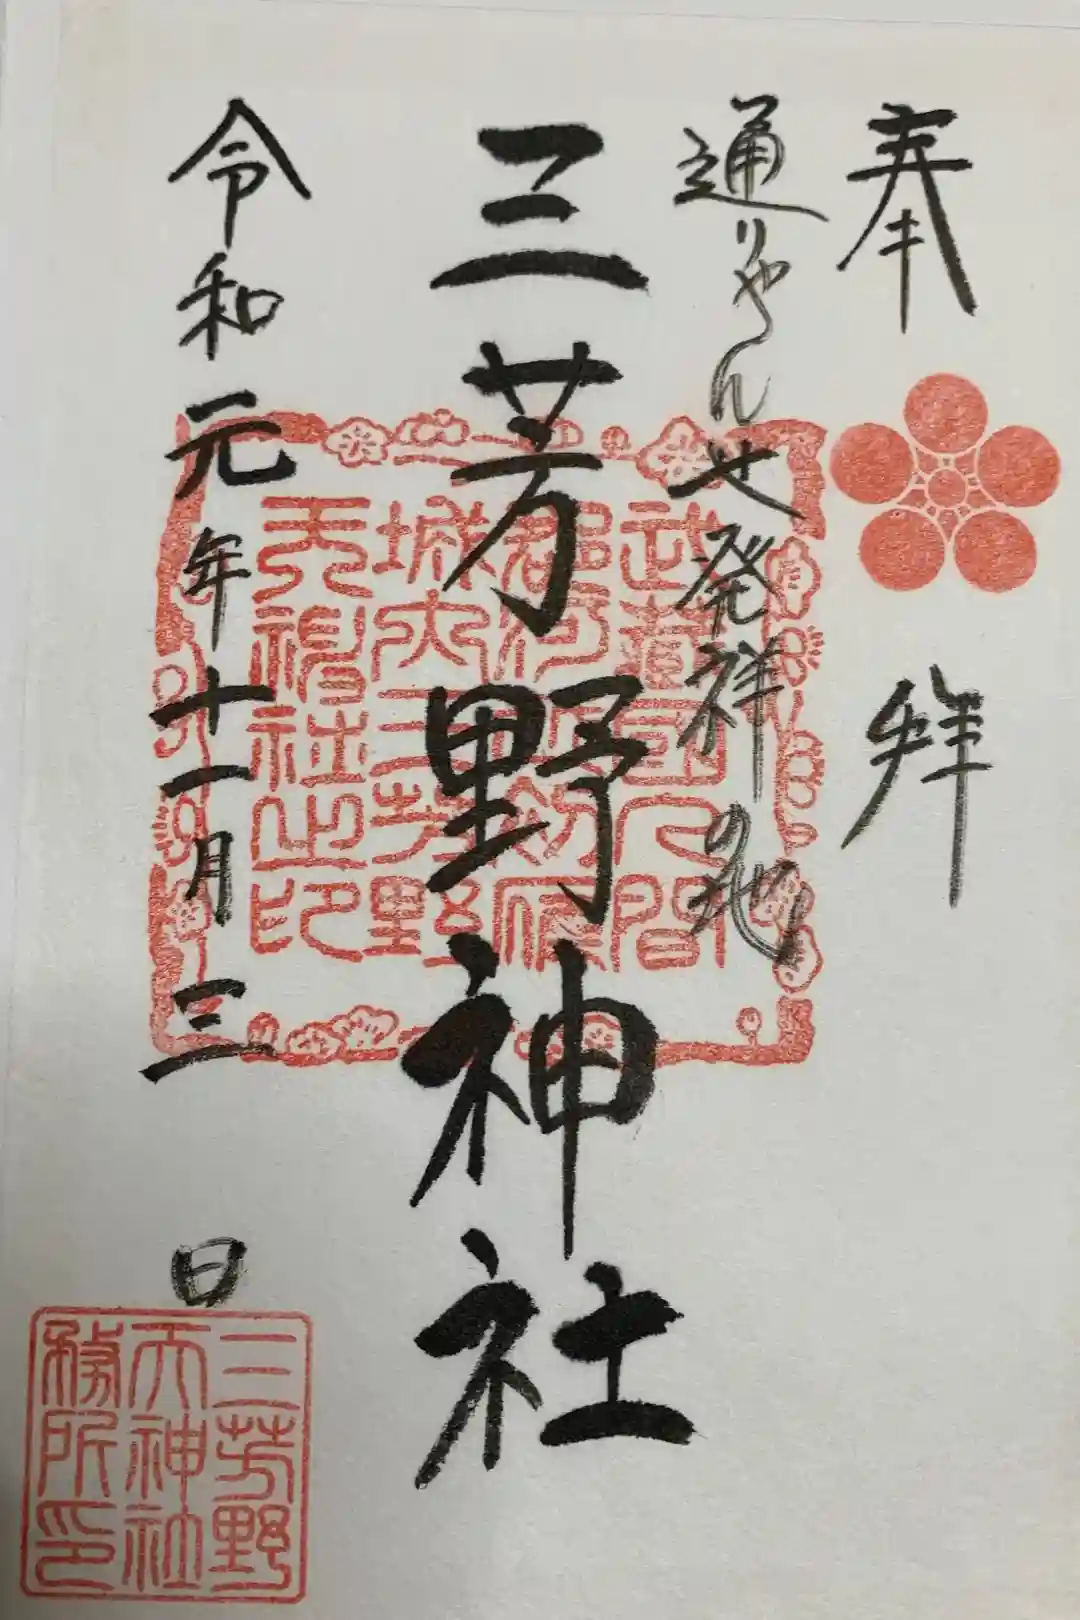 奉拜
通りゃんせ発祥の地
三芳野神社
令和元年十一月三日
武蔵国入間
郡河越初雁
城内三芳野
天神社之印
三芳野
天神社
務所印